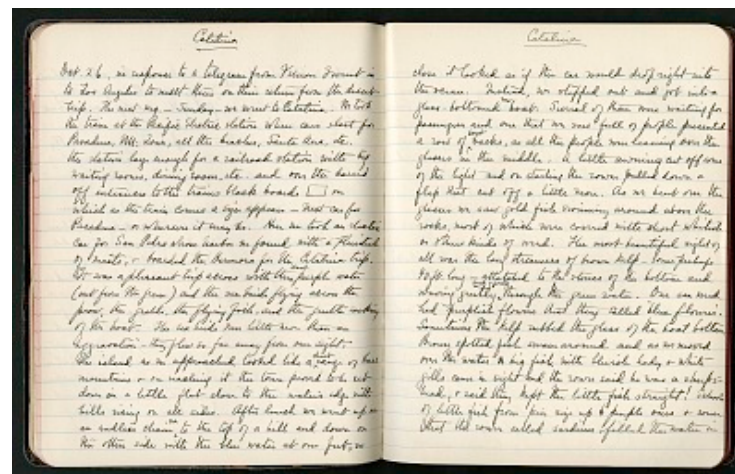 Catalina
Oct. 26, in response to a telegram from Vernon
to Los Angeles to meet them on their return from the desert
trip. The next day – Sunday – we went to Catalina. We took
the train at the Pacific Electric station where cars start for
Pasadena, Mt. Lowe, all the beaches, Santa Ana, etc.
the station large enough for a railroad station with big
waiting rooms, dining room, etc. and over the barred
off entrances to the trains black boards on
which as the train comes a sign appears – Next car for
Pasadena – or wherever it may be. Here we took an electric
car for San Pedro whose harbor we found with a
of masts, & boarded the Hermosa for the Catalina trip.
It was a pleasant trip across with the purple water
(out from the green) and the sea birds flying across the
prow, the gulls, the flying fish, and the gentle rocking
of the boat. The sea birds were little more than an
aggravation – they flew so far away from our sight.
The island as we approached looked like a range of bare
mountains & on reaching it the town proved to be set
down on a little flat close to the water's edge with
hills rising on all sides. After lunch we went up on
an endless chain to the top of a hill and down on
the other side with the blue water at our feet, so
Catalina
close it looked as if the car would drop right into
the ocean. Instead, we stepped out and got into a
glass-bottomed boat. Several of them were waiting for
passengers and one that we saw full of people presented
a row of backs, as all the people were leaning over the
glasses in the middle. A little awning cut off some
of the light and on starting the rower pulled down a
flap that cut off a little more. As we bent over the
glasses we saw gold fish swimming around above the
rocks, most of which were covered with short
or other kinds of weed. The most beautiful sight of
all was the long streamers of brown kelp. Some perhaps
long – attached to the stones of the bottom and
waving gently through the green water. One sea weed
had purplish flowers that they called blue flowers.
Sometimes the kelp rubbed the glass of the boat bottom
spotted fish swam around and as we moved
over the water a big fish, with bluish body & white
gills came in sight and the rower said he was a sheeps-
head, & said they kept the little fish straight!
of little fish from
that the rower called sardines filled the water in